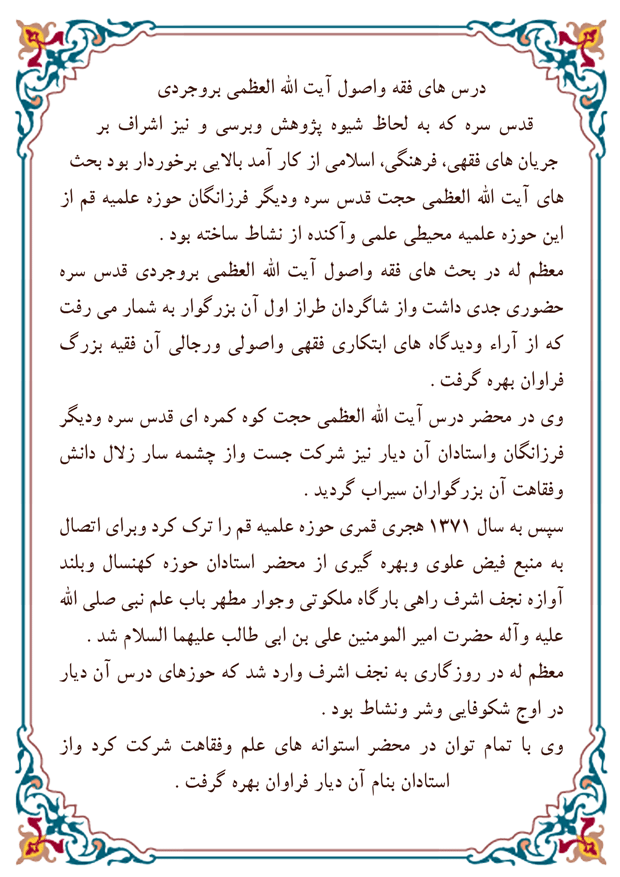 درس های فقه واصول آیت الله العظمی بروجردی
قدس سره که به لحاظ شیوه پژوهش وبرسی و نیز اشراف بر
جریان های فقهی، فرهنگی، اسلامی از کار آمد بالایی برخوردار بود بحث
های آیت الله العظمی حجت قدس سره ودیگر فرزانگان حوزه علمیه قم از
این حوزه علمیه محیطی علمی وآکنده از نشاط ساخته بود .
معظم له در بحث های فقه واصول آیت الله العظمی بروجردی قدس سره
حضوری جدی داشت واز شاگردان طراز اول آن بزرگوار به شمار می رفت
که از آراء ودیدگاه های ابتکاری فقهی واصولی ورجالی آن فقیه بزرگ
فراوان بهره گرفت .
وی در محضر درس آیت الله العظمی حجت کوه کمره ای قدس سره ودیگر
فرزانگان واستادان آن دیار نیز شرکت جست واز چشمه سار زلال دانش
وفقاهت آن بزرگواران سیراب گردید .
سپس به سال ۱۳۷۱ هجری قمری حوزه علمیه قم را ترک کرد وبرای اتصال
به منبع فیض علوی وبهره گیری از محضر استادان حوزه کهنسال وبلند
آوازه نجف اشرف راهی بارگاه ملکوتی وجوار مطهر باب علم نبی صلی الله
علیه وآله حضرت امیر المومنین علی بن ابی طالب علیهما السلام شد .
معظم له در روزگاری به نجف اشرف وارد شد که حوزهای درس آن دیار
در اوج شکوفایی وشر ونشاط بود .
وی با تمام توان در محضر استوانه های علم وفقاهت شرکت کرد واز
استادان بنام آن دیار فراوان بهره گرفت .